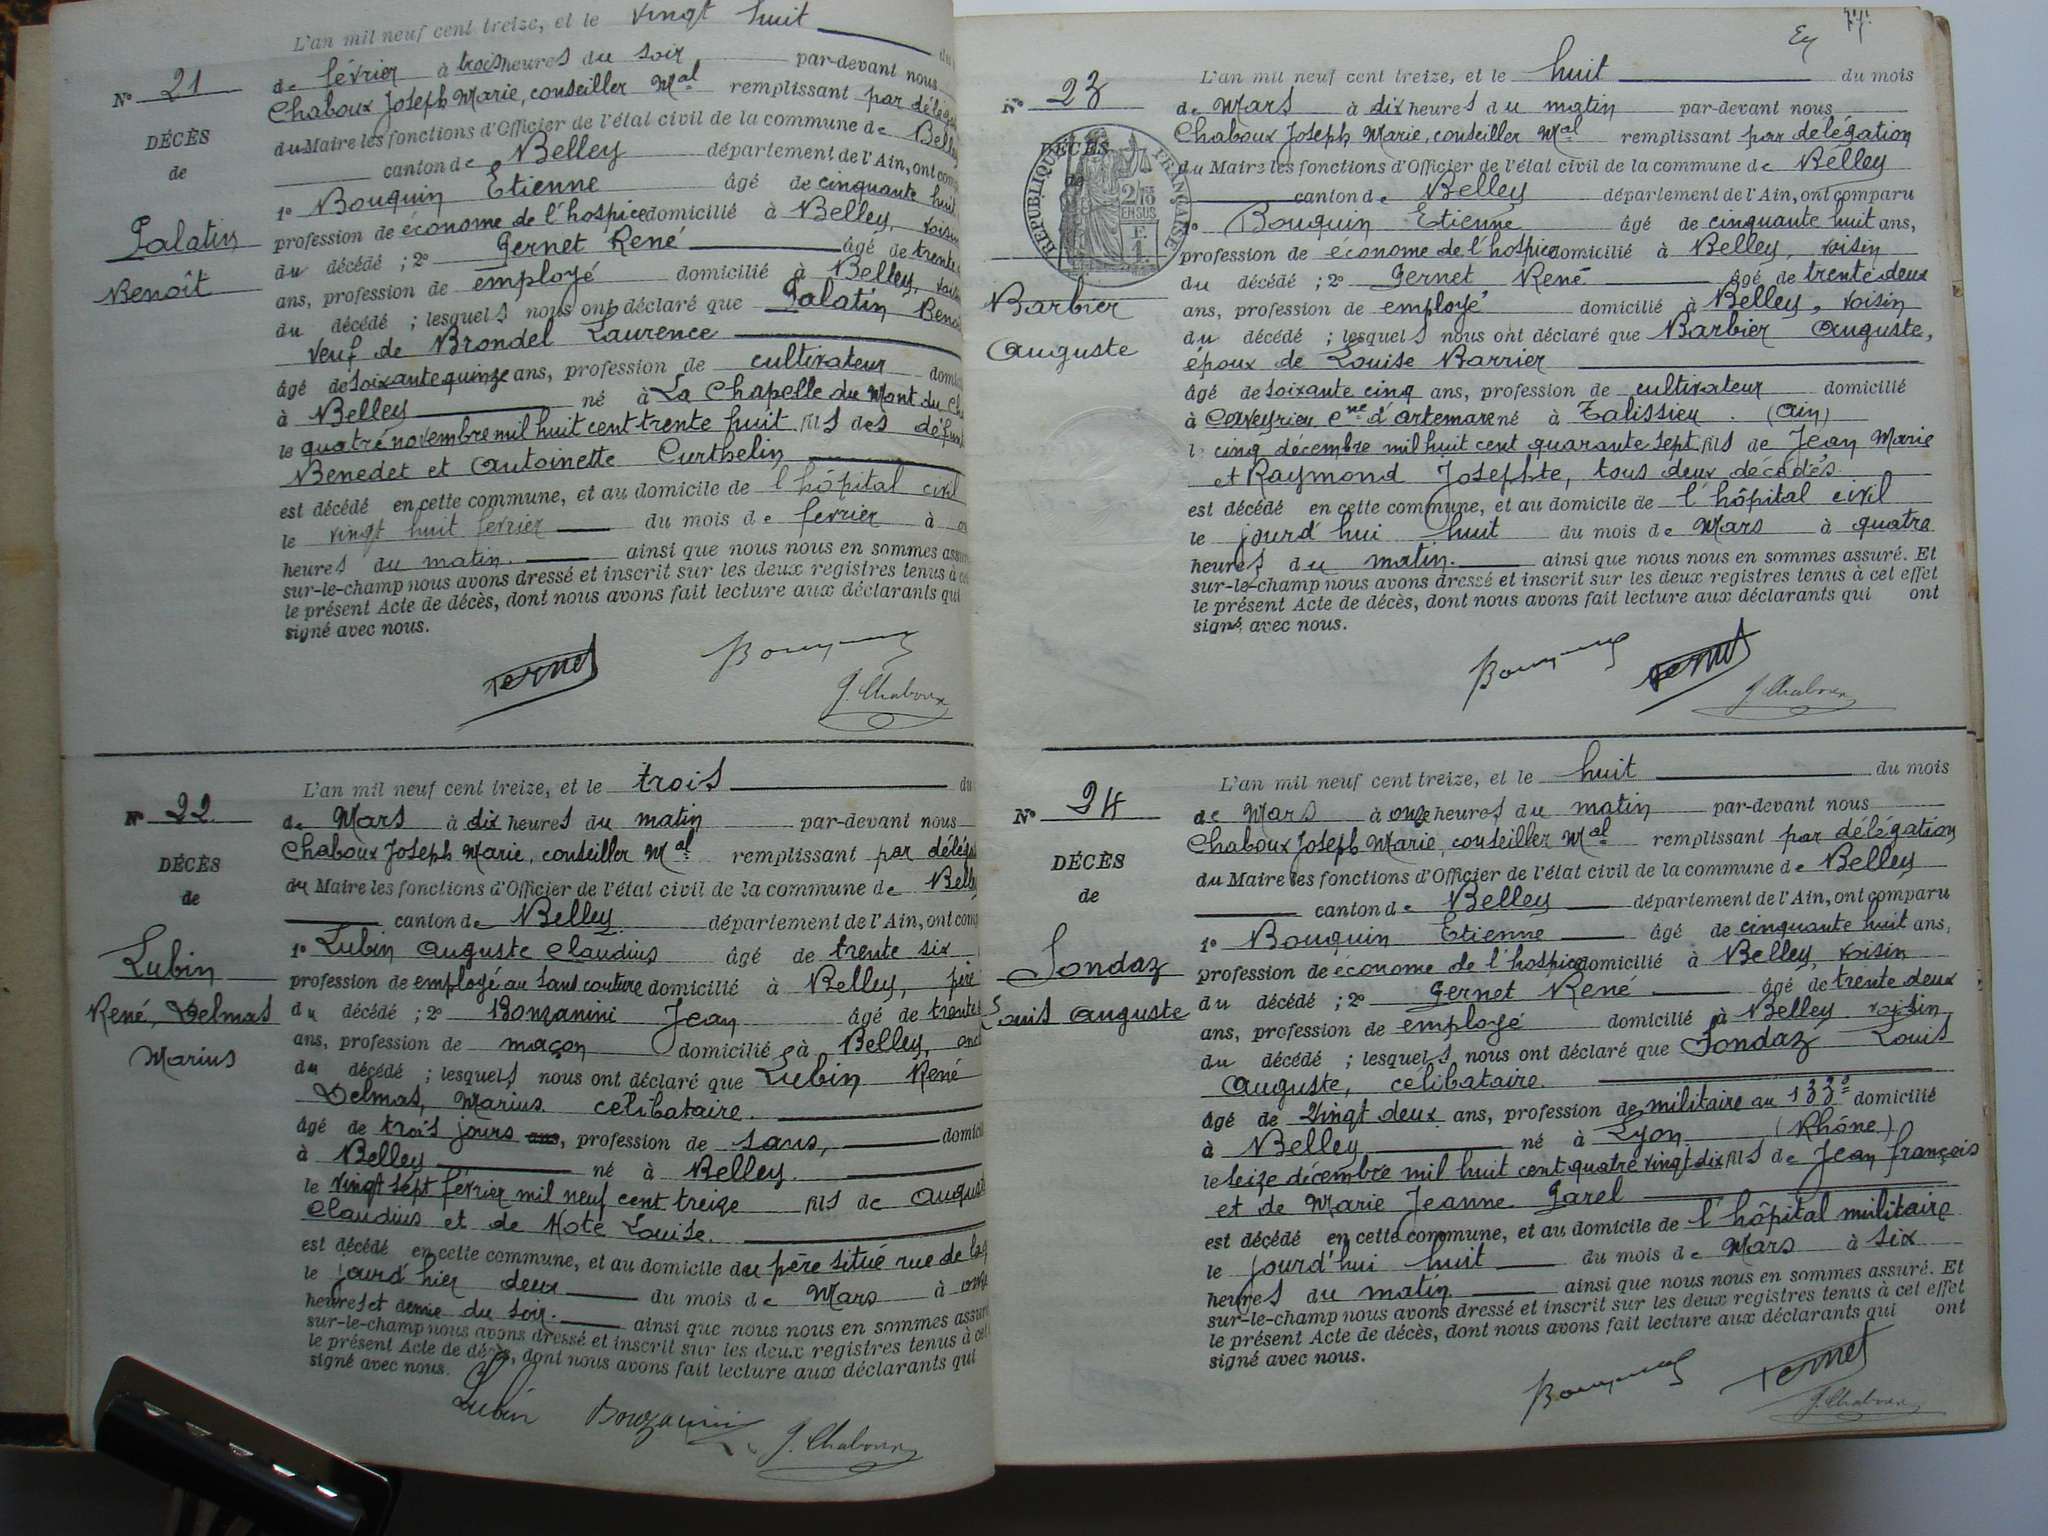 L'an mil neuf cent treize, et le vingt huit du
N° 21
de février à trois heures du soir par-devant nous
Chaboux Joseph Marie, conseiller Mal remplissant par délég
du Maire les fonctions d'Officier de l'état civil de la commune de Belley
canton de Belley département de l'Ain, ont comp
1° Bouquin Etienne âgé de cinquante huit
profession de économe de l'hospice domicilié à Belley, voisin
du décédé ; 2° Gernet René âgé de trente
ans, profession de employé domicilié à Belley, voisin
du décédé ; lesquels nous ont déclaré que Palatin Benoi
veuf de Brondel Laurence
âgé de soixante quinze ans, profession de cultivateur domi
à Belley né à La Chapelle du Mont du Ch
le quatre novembre mil huit cent trente huit fils des défunt
Benedet et Antoinette Curthelin
est décédé en cette commune, et au domicile de l'hôpital civil
le vingt huit février du mois de fevrier à
heures du matin. ainsi que nous nous en sommes assur
sur-le-champ nous avons dressé et inscrit sur les deux registres tenus à c
le présent Acte de décès, dont nous avons fait lecture aux déclarants qui
signé avec nous.
DÉCÈS
de
Palatin
Benoît
Gernet Bouquin
J. Chaboux
L'an mil neuf cent treize, et le trois du
N° 22.
de Mars à dix heures du matin par-devant nous
Chaboux Joseph Marie, conseiller Mal remplissant par délég
du Maire les fonctions d'Officier de l'état civil de la commune de Belley
canton de Belley département de l'Ain, ont comp
1° Lubin Auguste Claudius âgé de trente six
profession de employé au sans couture domicilié à Belley, père
du décédé ; 2° Bonzanini Jean âgé de trente
ans, profession de maçon domicilié à Belley, oncl
du décédé ; lesquels nous ont déclaré que Lubin René
Delmas, Marius célibataire.
âgé de trois jours ans, profession de sans, domici
à Belley né à Belley.
le vingt sept février mil neuf cent treize fils de August
Claudius et de Mote Louise.
est décédé en cette commune, et au domicile du père situé rue de la
le jourd'hier deux du mois de Mars à onze
heures et demie du soir. ainsi que nous nous en sommes assuré
sur-le-champ nous avons dressé et inscrit sur les deux registres tenus à cet
le présent Acte de décès, dont nous avons fait lecture aux déclarants qui
signé avec nous.
DÉCÈS
de
Lubin
René, Delmas
Marius
Lubin Bonzanini J. Chaboux
77
L'an mil neuf cent treize, et le huit du mois
N° 23
de Mars à dix heures du matin par-devant nous
Chaboux Joseph Marie, conseiller Mal remplissant par delégation
du Maire les fonctions d'Officier de l'état civil de la commune de Belley
canton de Belley département de l'Ain, ont comparu
1° Bouquin Etienne âgé de cinquante huit ans,
profession de économe de l'hospice domicilié à Belley, voisin
du décédé ; 2° Gernet René âgé de trente deux
ans, profession de employé domicilié à Belley, voisin
du décédé ; lesquels nous ont déclaré que Barbier Auguste,
époux de Louise Barrier
âgé de soixante cinq ans, profession de cultivateur domicilié
à Cerveyrieu cne d'Artemare né à Talissieu (Ain)
le cinq décembre mil huit cent quarante sept fils de Jean Marie
et Raymond Josephte, tous deux décédés.
est décédé en cette commune, et au domicile de l'hôpital civil
le jourd'hui huit du mois de Mars à quatre
heures du matin. ainsi que nous nous en sommes assuré. Et
sur-le-champ nous avons dressé et inscrit sur les deux registres tenus à cet effet
le présent Acte de décès, dont nous avons fait lecture aux déclarants qui ont
signé avec nous.
DÉCÈS
de
RÉPUBLIQUE FRANÇAISE
2/10
EN SUS
Barbier
Auguste
Bouquin Gernet
J. Chaboux
L'an mil neuf cent treize, et le huit du mois
N° 24
de Mars à onze heures du matin par-devant nous
Chaboux Joseph Marie, conseiller Mal remplissant par délégation
du Maire les fonctions d'Officier de l'état civil de la commune de Belley
canton de Belley département de l'Ain, ont comparu
1° Bouquin Etienne âgé de cinquante huit ans,
profession de économe de l'hospice domicilié à Belley, voisin
du décédé ; 2° Gernet René âgé de trente deux
ans, profession de employé domicilié à Belley voisin
du décédé ; lesquels nous ont déclaré que Sondaz Louis
Auguste, célibataire.
âgé de Vingt deux ans, profession de militaire au 133e domicilié
à Belley né à Lyon (Rhône)
le seize décembre mil huit cent quatre vingt dix fils de Jean françois
et de Marie Jeanne Parel
est décédé en cette commune, et au domicile de l'hôpital militaire
le jourd'hui huit du mois de Mars à six
heures du matin ainsi que nous nous en sommes assuré. Et
sur-le-champ nous avons dressé et inscrit sur les deux registres tenus à cet effet
le présent Acte de décès, dont nous avons fait lecture aux déclarants qui ont
signé avec nous.
DÉCÈS
de
Sondaz
Louis Auguste
Bouquin Gernet
J. Chaboux